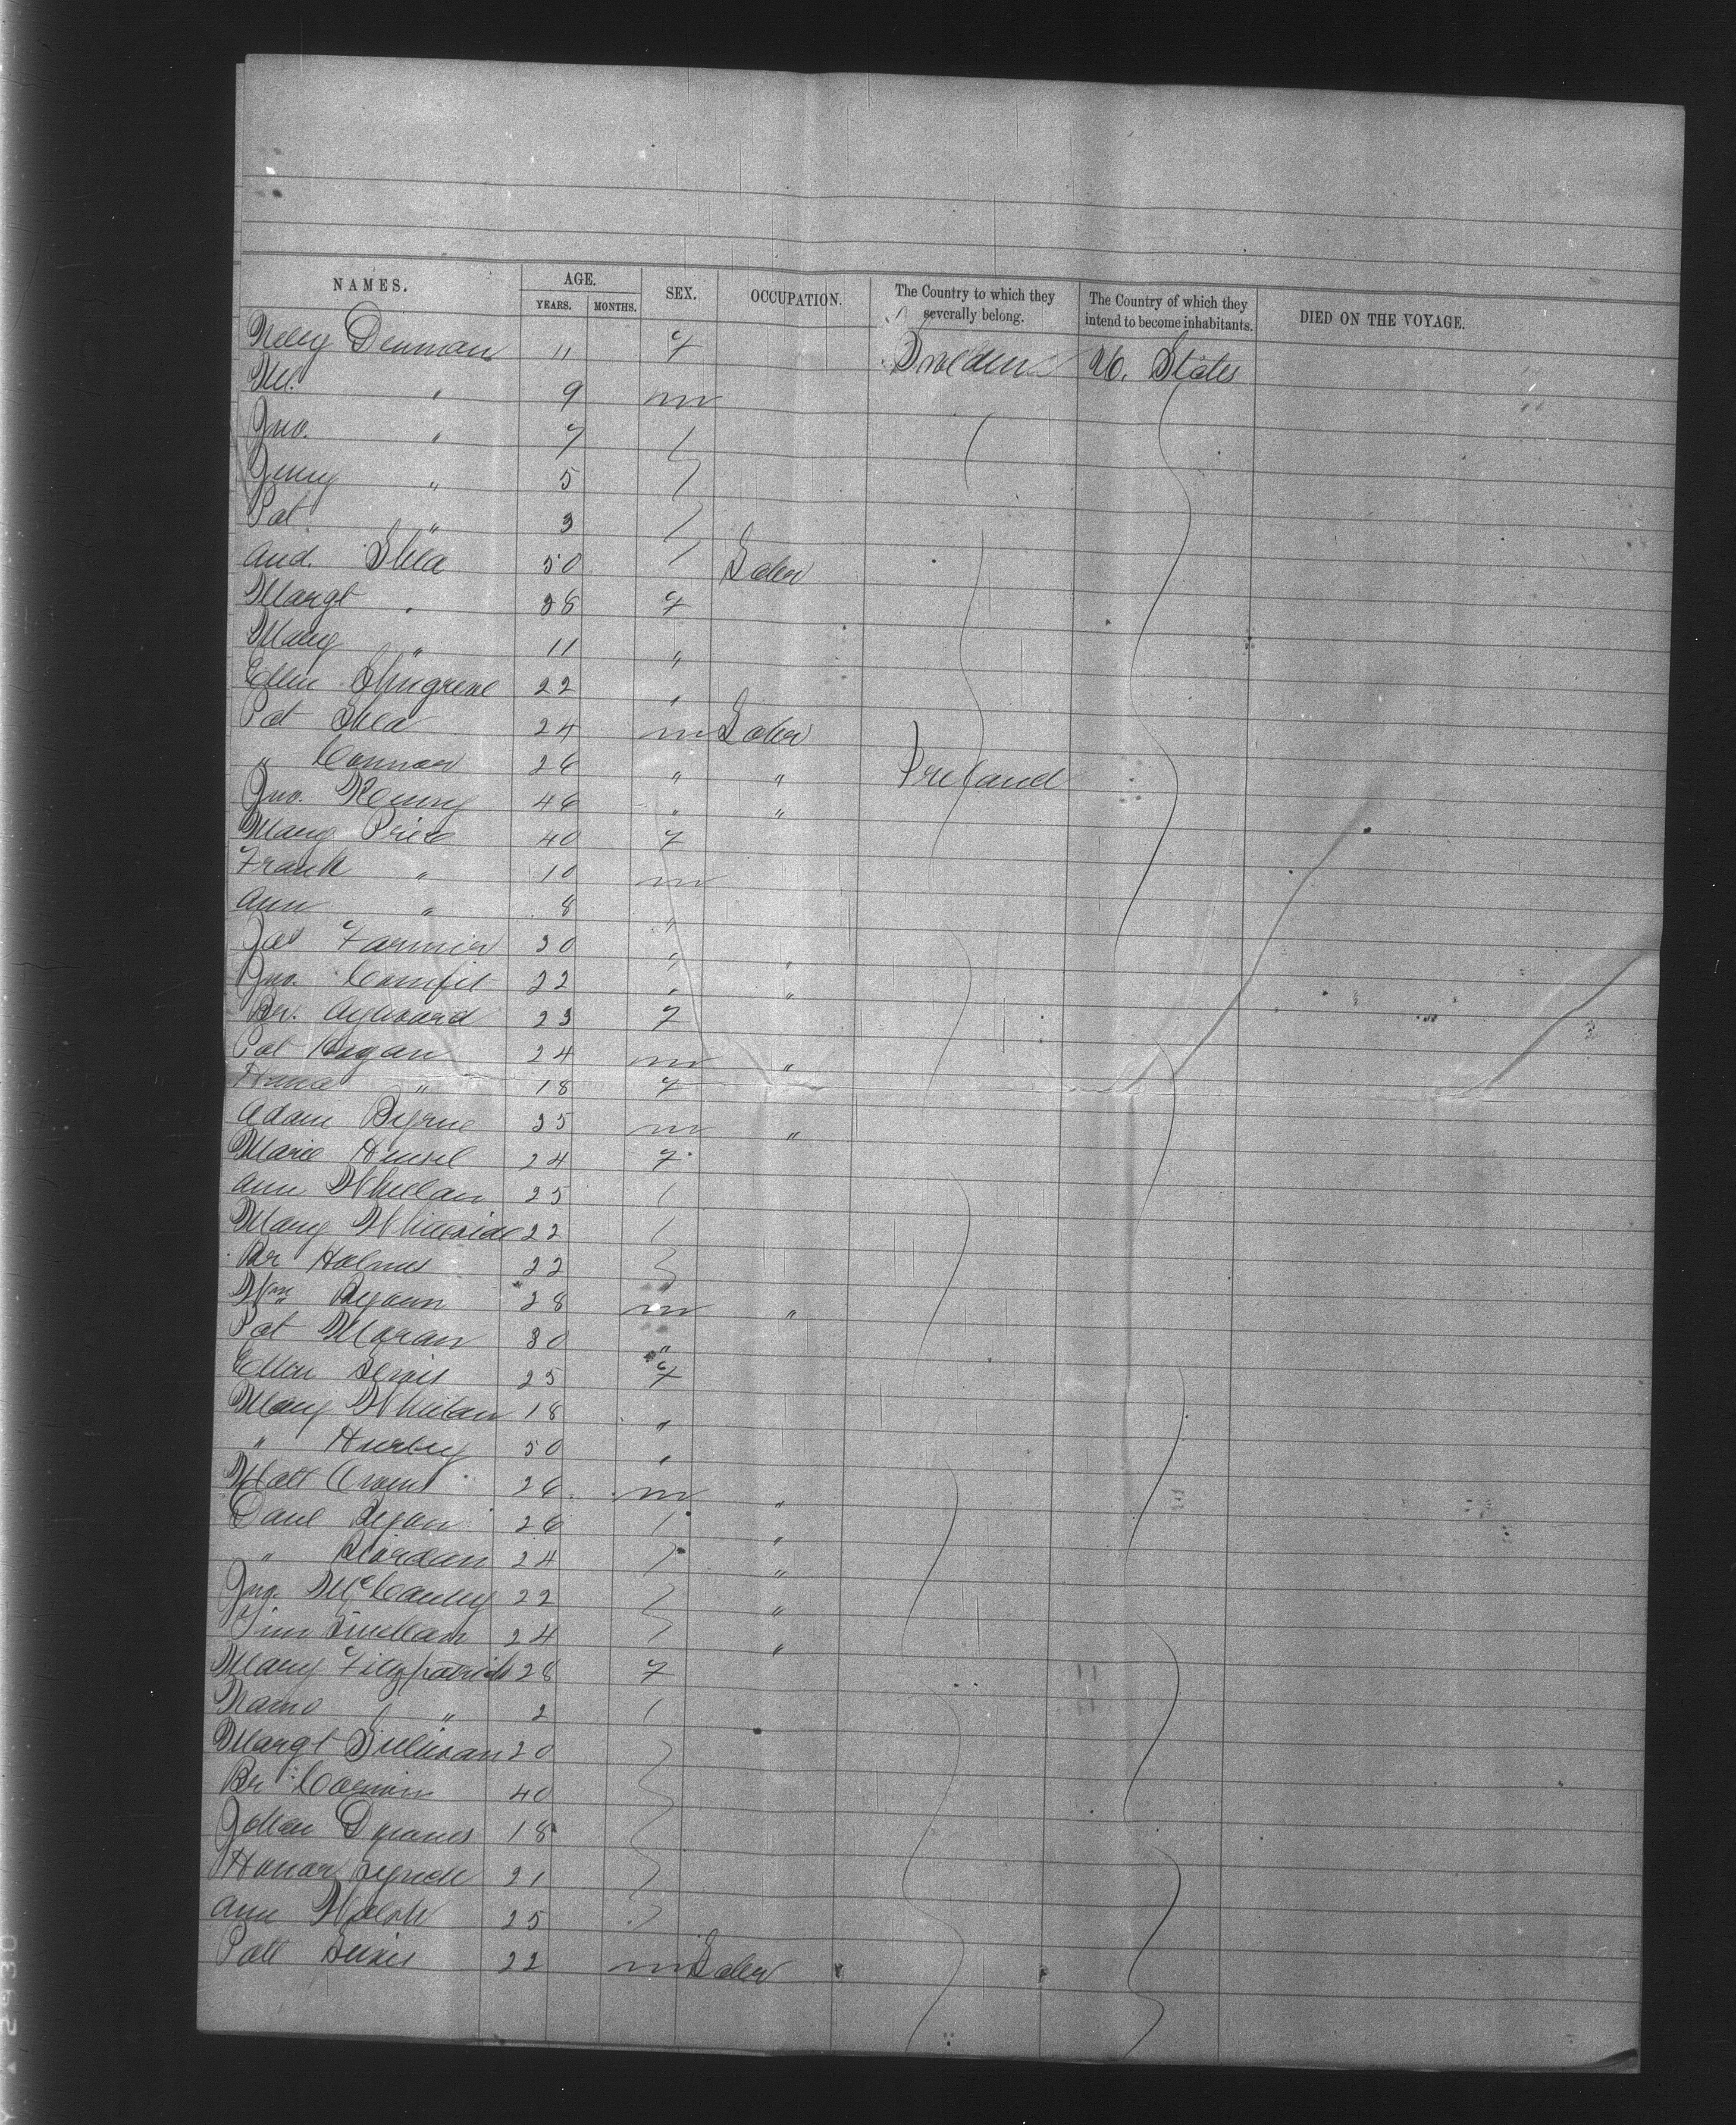 NAMES. AGE. SEX. OCCUPATION. The Country to which they severally belong. The Country of which they intend to become inhabitants. DIED ON THE VOYAGE.
YEARS. MONTHS.
Denman 11 f Sweden U. States
M. " 9 m
Jno. " 7
Jenny " 5
Pat " 3
And. Shea 50 Labr
Margt " 38 f
Mary " 11 "
Ellen 22 "
Pat Shea 24 m Labr
" Connor 26 " " Ireland
Jno. Kenny 46 " "
Mary Price 40 f
Frank " 10 m
Ann " 8 "
Jas Farmer 30 " "
Jno. 22 " "
Br. Aylward 23 f
Pat Hogan 24 m "
Hana " 18 f
Adam Byrne 35 m "
Marie Hensel 24 f
Ann Whelan 25
Mary Whiteside 22
Br Holmes 22
Wm Ryan 28 m "
Pat Moran 30 "
Ellen Lewis 25 f
Mary Whelan 18 "
" Hurley 50 "
Matt Owens 26 m "
Danl Ryan 26 "
" Riordan 24 "
Jno. McCauley 22 "
Tim 24 "
Mary Fitzpatrick 28 f
" 2
Margt Sullivan 20
Br 40
18
Honor Lynch 21
Ann Walsh 25
Patt Lewis 22 m Labr